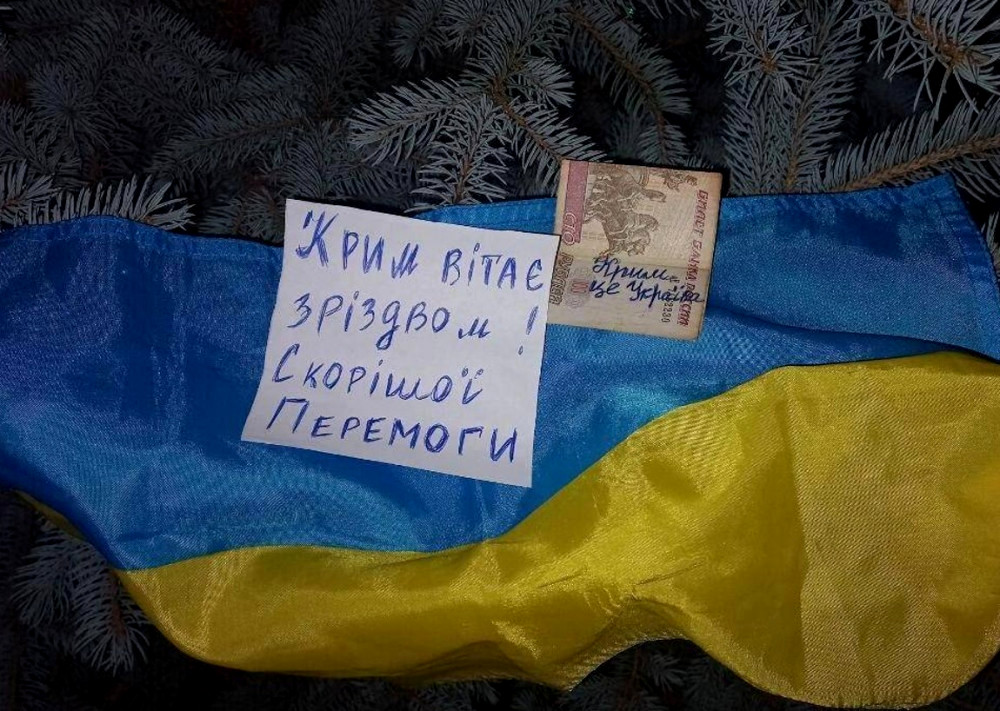 Крим вітає
зріздвом!
Скорішої
Перемоги
БИЛЕТ БАНКА РОССИИ
СТО
РУБЛЕЙ
Крим
це Україна